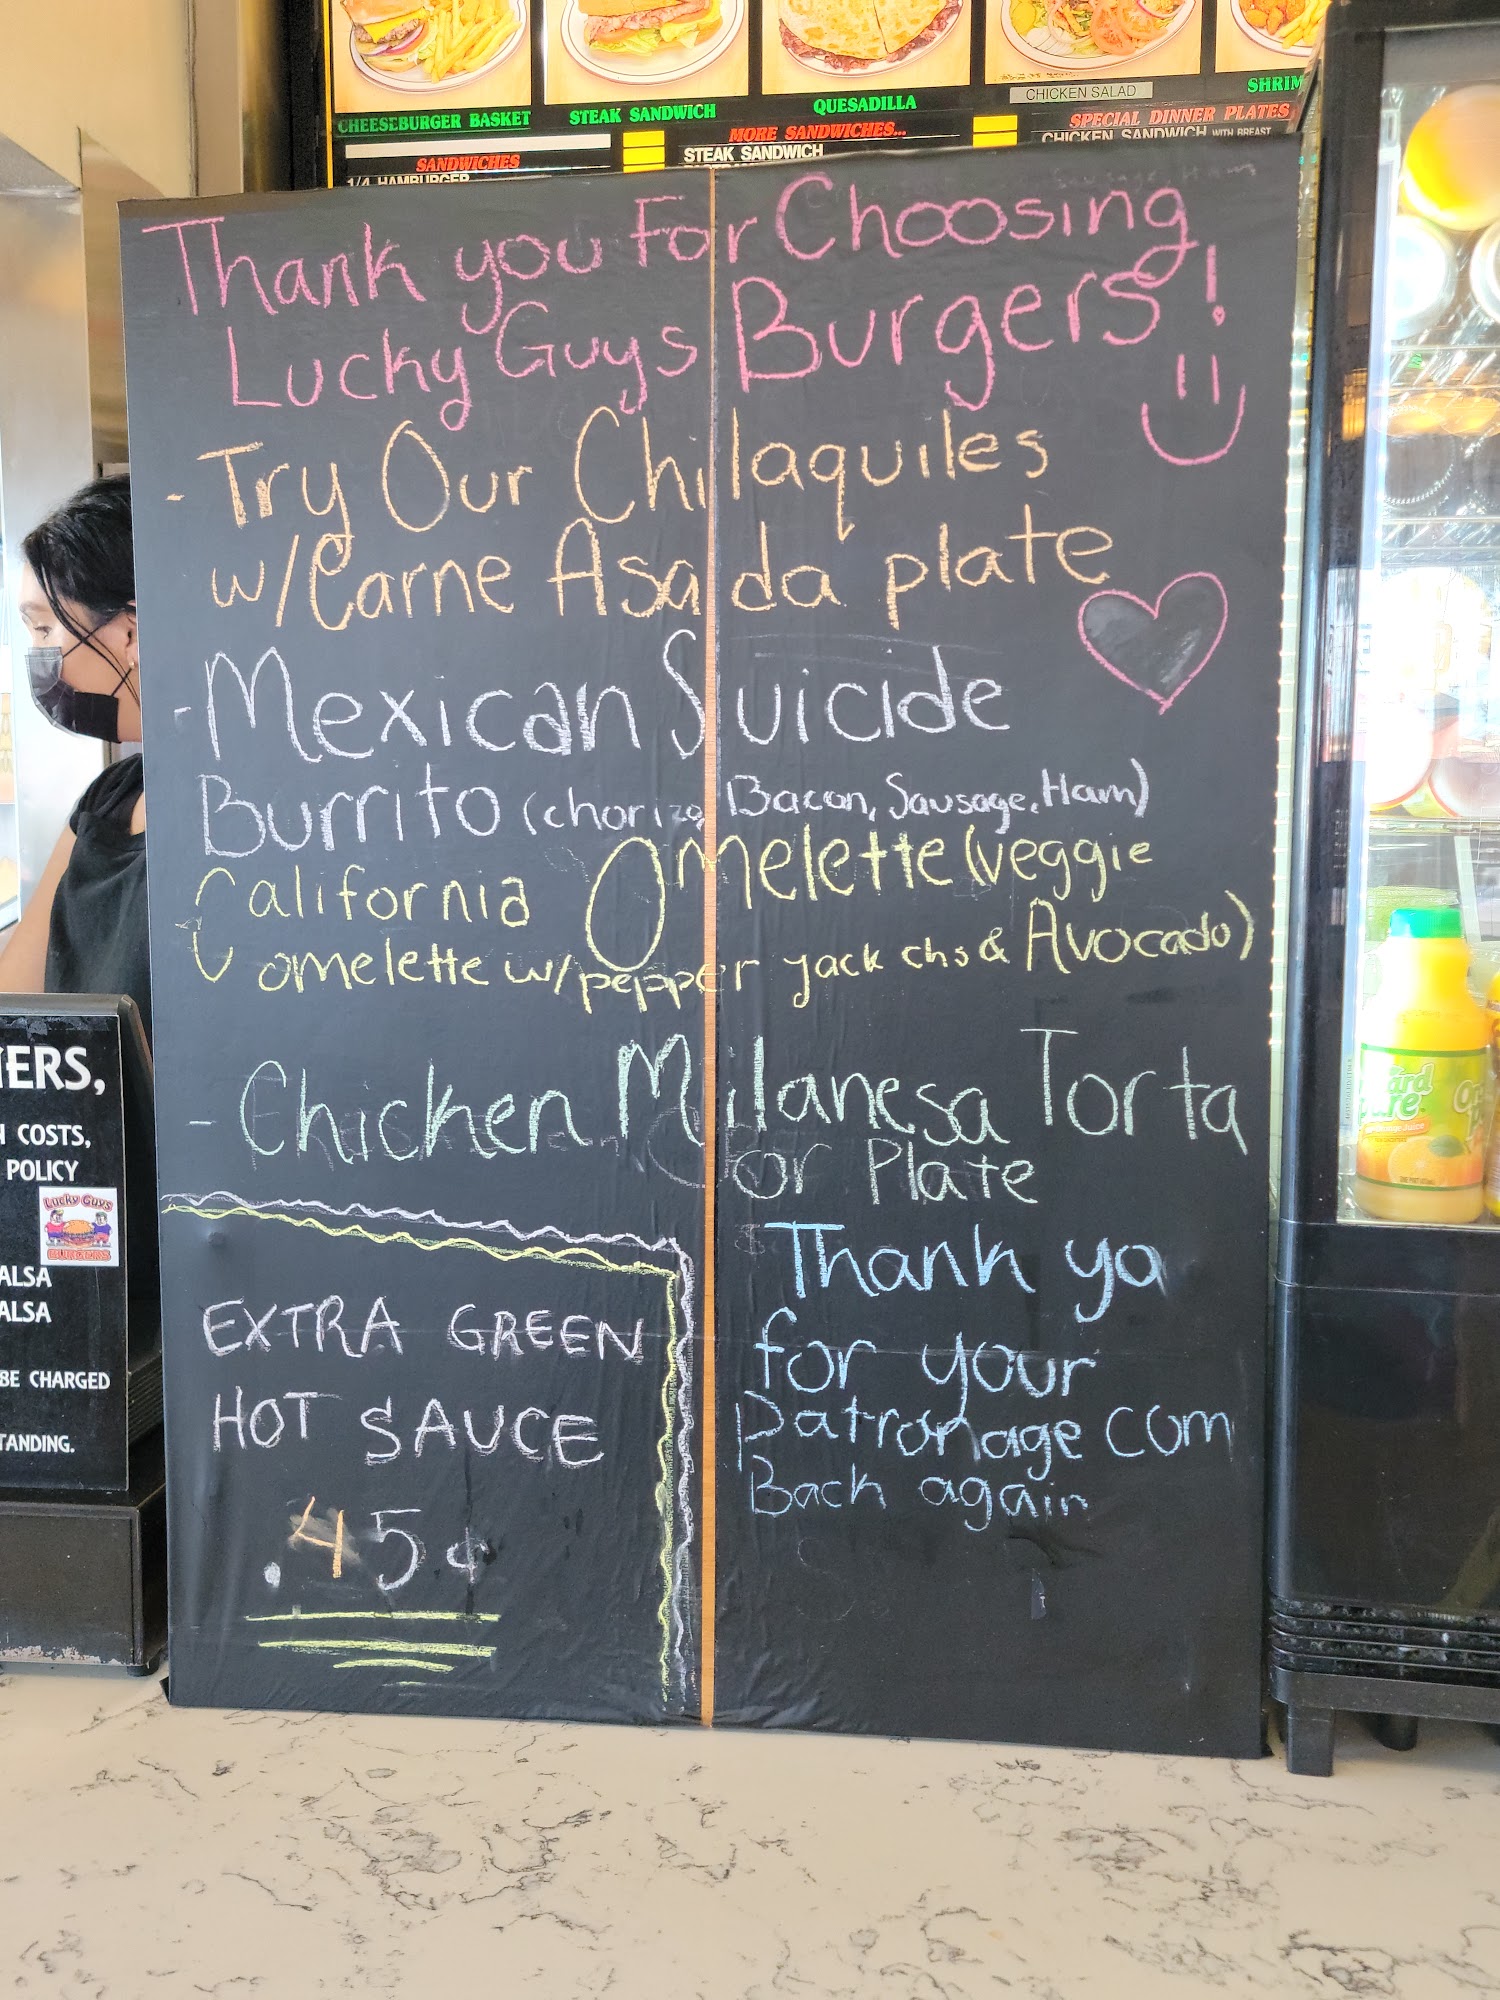 CHEESEBURGER BASKET
STEAK SANDWICH
QUESADILLA
CHICKEN SALAD
SANDWICHES
1/4 HAMBURGER
MORE SANDWICHES...
STEAK SANDWICH
SPECIAL DINNER PLATES
CHICKEN SANDWICH WITH BREAST
Thank you For Choosing
Lucky Guys Burgers!
- Try Our Chilaquiles
w/Carne Asada plate
- Mexican Suicide
Burrito (chorizo, Bacon, Sausage, Ham)
California Omelette (veggie
omelette w/pepper jack chs & Avocado)
- Chicken Milanesa Torta
or Plate
EXTRA GREEN
HOT SAUCE
.45¢
Thank ya
for your
patronage com
Back again
COSTS,
POLICY
Lucky Guys
BURGERS
BE CHARGED